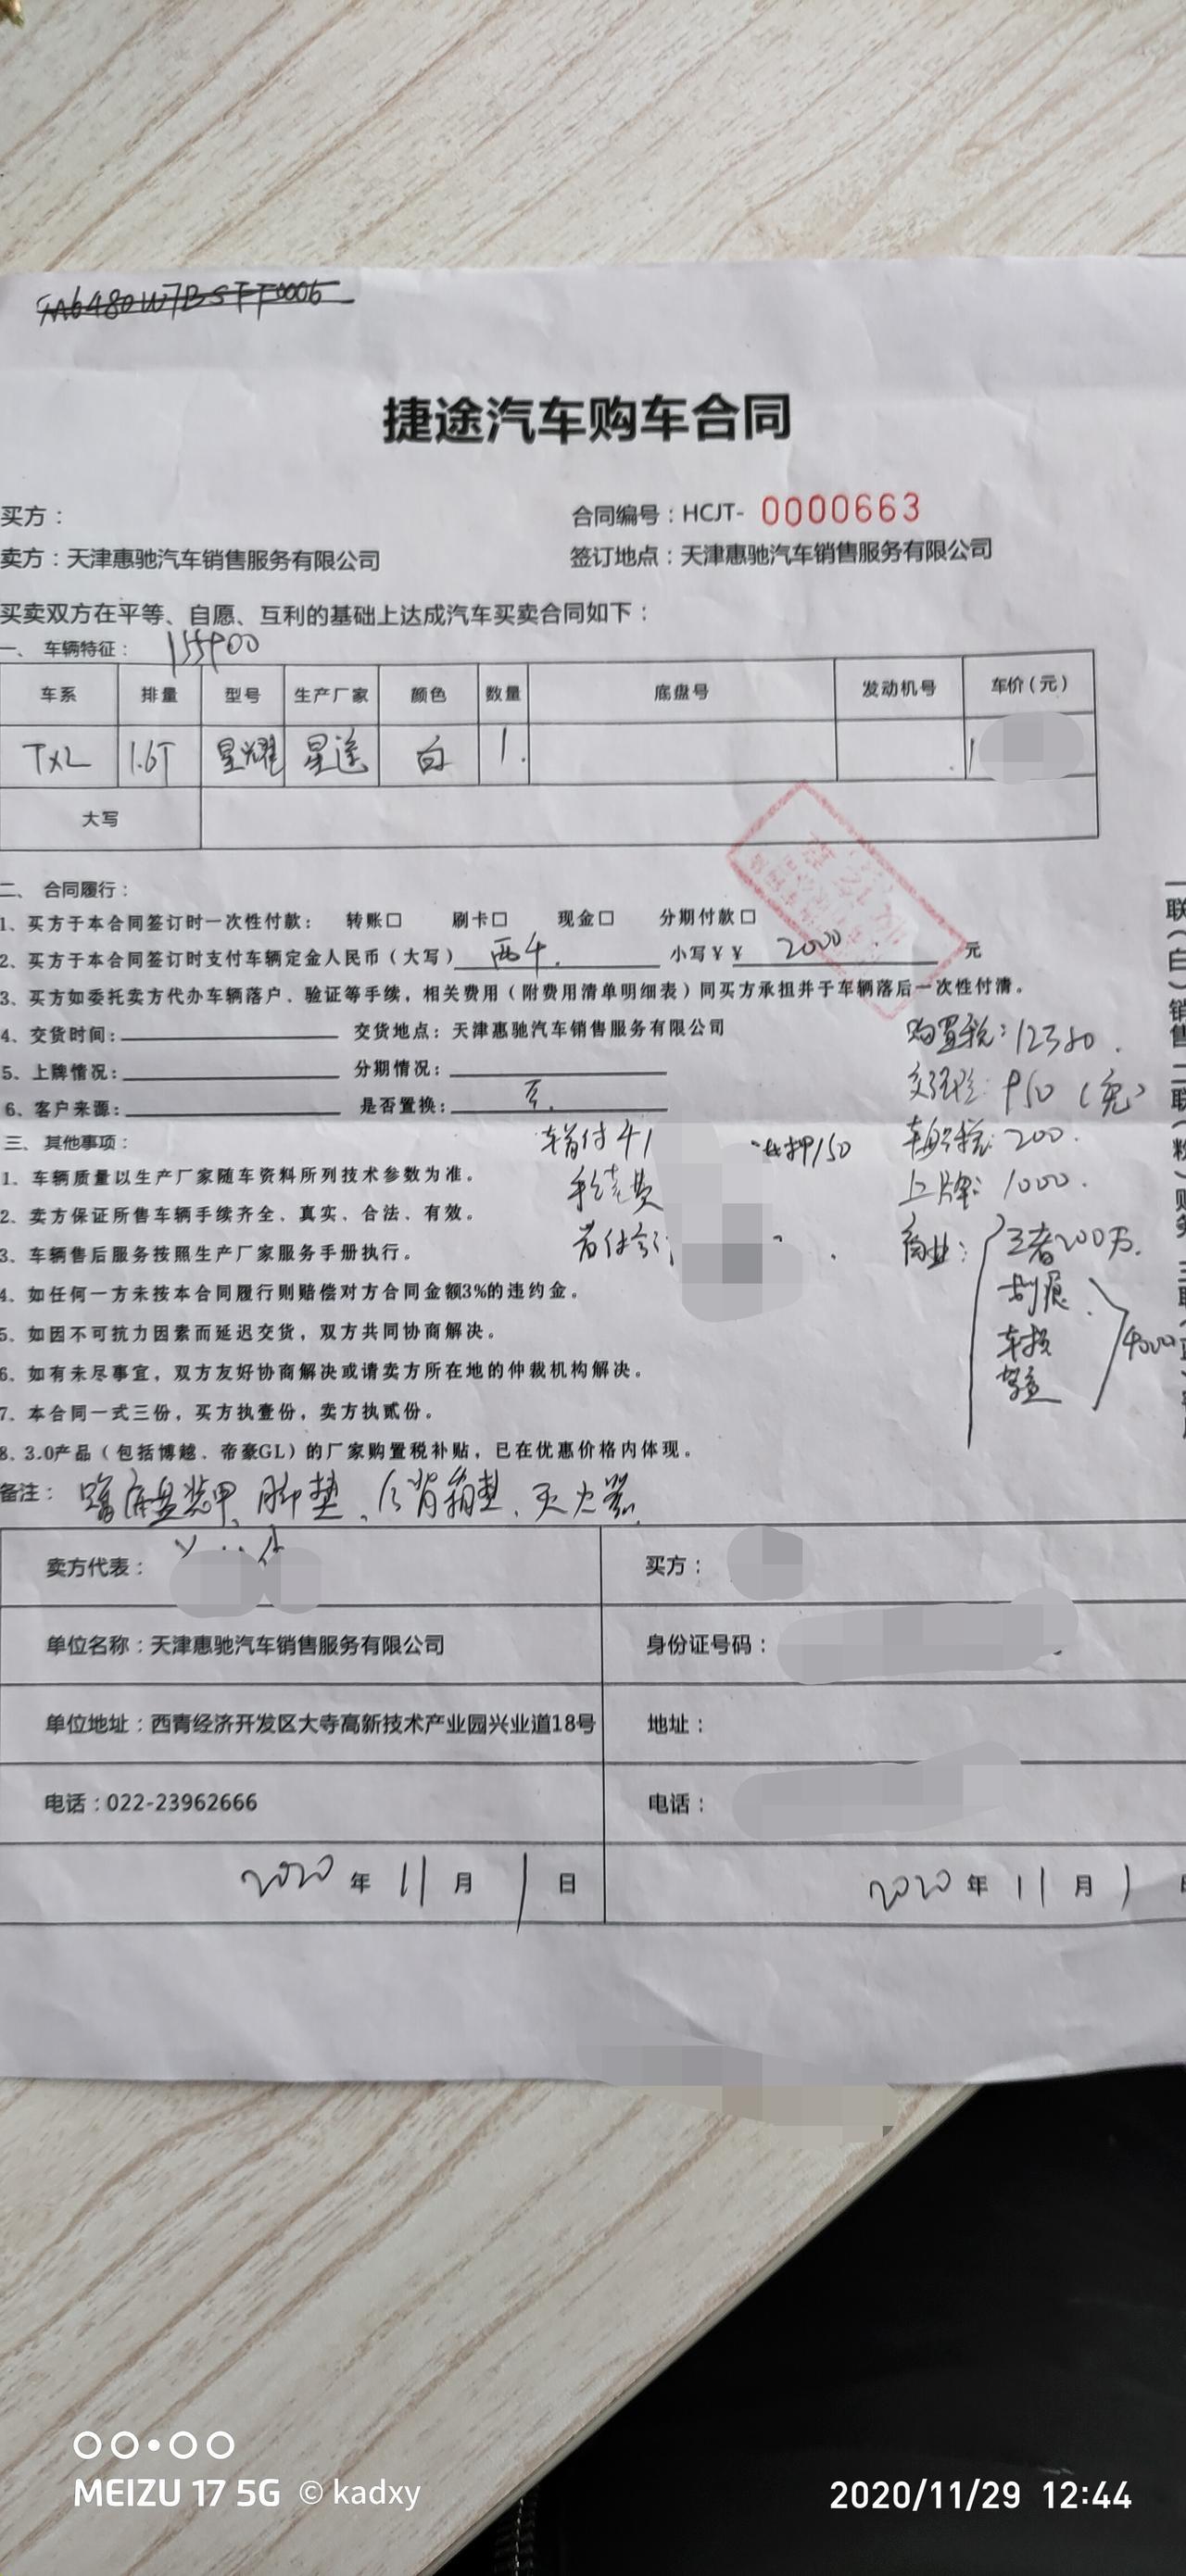 捷途汽车购车合同
买方：
合同编号：HCJT- 0000663
卖方：天津惠驰汽车销售服务有限公司
签订地点：天津惠驰汽车销售服务有限公司
买卖双方在平等、自愿、互利的基础上达成汽车买卖合同如下：
一、车辆特征： 155900
车系 排量 型号 生产厂家 颜色 数量 底盘号 发动机号 车价（元）
TXL 1.6T 星耀 星途 白 1.
大写
二、合同履行：
1、买方于本合同签订时一次性付款： 转账□ 刷卡□ 现金□ 分期付款□
2、买方于本合同签订时支付车辆定金人民币（大写） 两千. 小写￥￥ 2000 元
3、买方如委托卖方代办车辆落户、验证等手续，相关费用（附费用清单明细表）同买方承担并于车辆落后一次性付清。
4、交货时间： 交货地点：天津惠驰汽车销售服务有限公司
购置税：12380.
5、上牌情况： 分期情况：
交强险：950（免）
6、客户来源： 是否置换： 否.
三、其他事项：
车首付41
车船税：200.
1、车辆质量以生产厂家随车资料所列技术参数为准。
手续费
上牌：1000.
2、卖方保证所售车辆手续齐全、真实、合法、有效。
3、车辆售后服务按照生产厂家服务手册执行。
首付
商业： 三者200万.
4、如任何一方未按本合同履行则赔偿对方合同金额3%的违约金。
划痕
5、如因不可抗力因素而延迟交货，双方共同协商解决。
车损 4000
6、如有未尽事宜，双方友好协商解决或请卖方所在地的仲裁机构解决。
7、本合同一式三份，买方执壹份，卖方执贰份。
8、3.0产品（包括博越、帝豪GL）的厂家购置税补贴，已在优惠价格内体现。
备注： 底盘装甲、脚垫、后背箱垫、灭火器
卖方代表：
买方：
单位名称：天津惠驰汽车销售服务有限公司
身份证号码：
单位地址：西青经济开发区大寺高新技术产业园兴业道18号
地址：
电话：022-23962666
电话：
2020年11月1日
2020年11月1日
MEIZU 17 5G © kadxy
2020/11/29 12:44